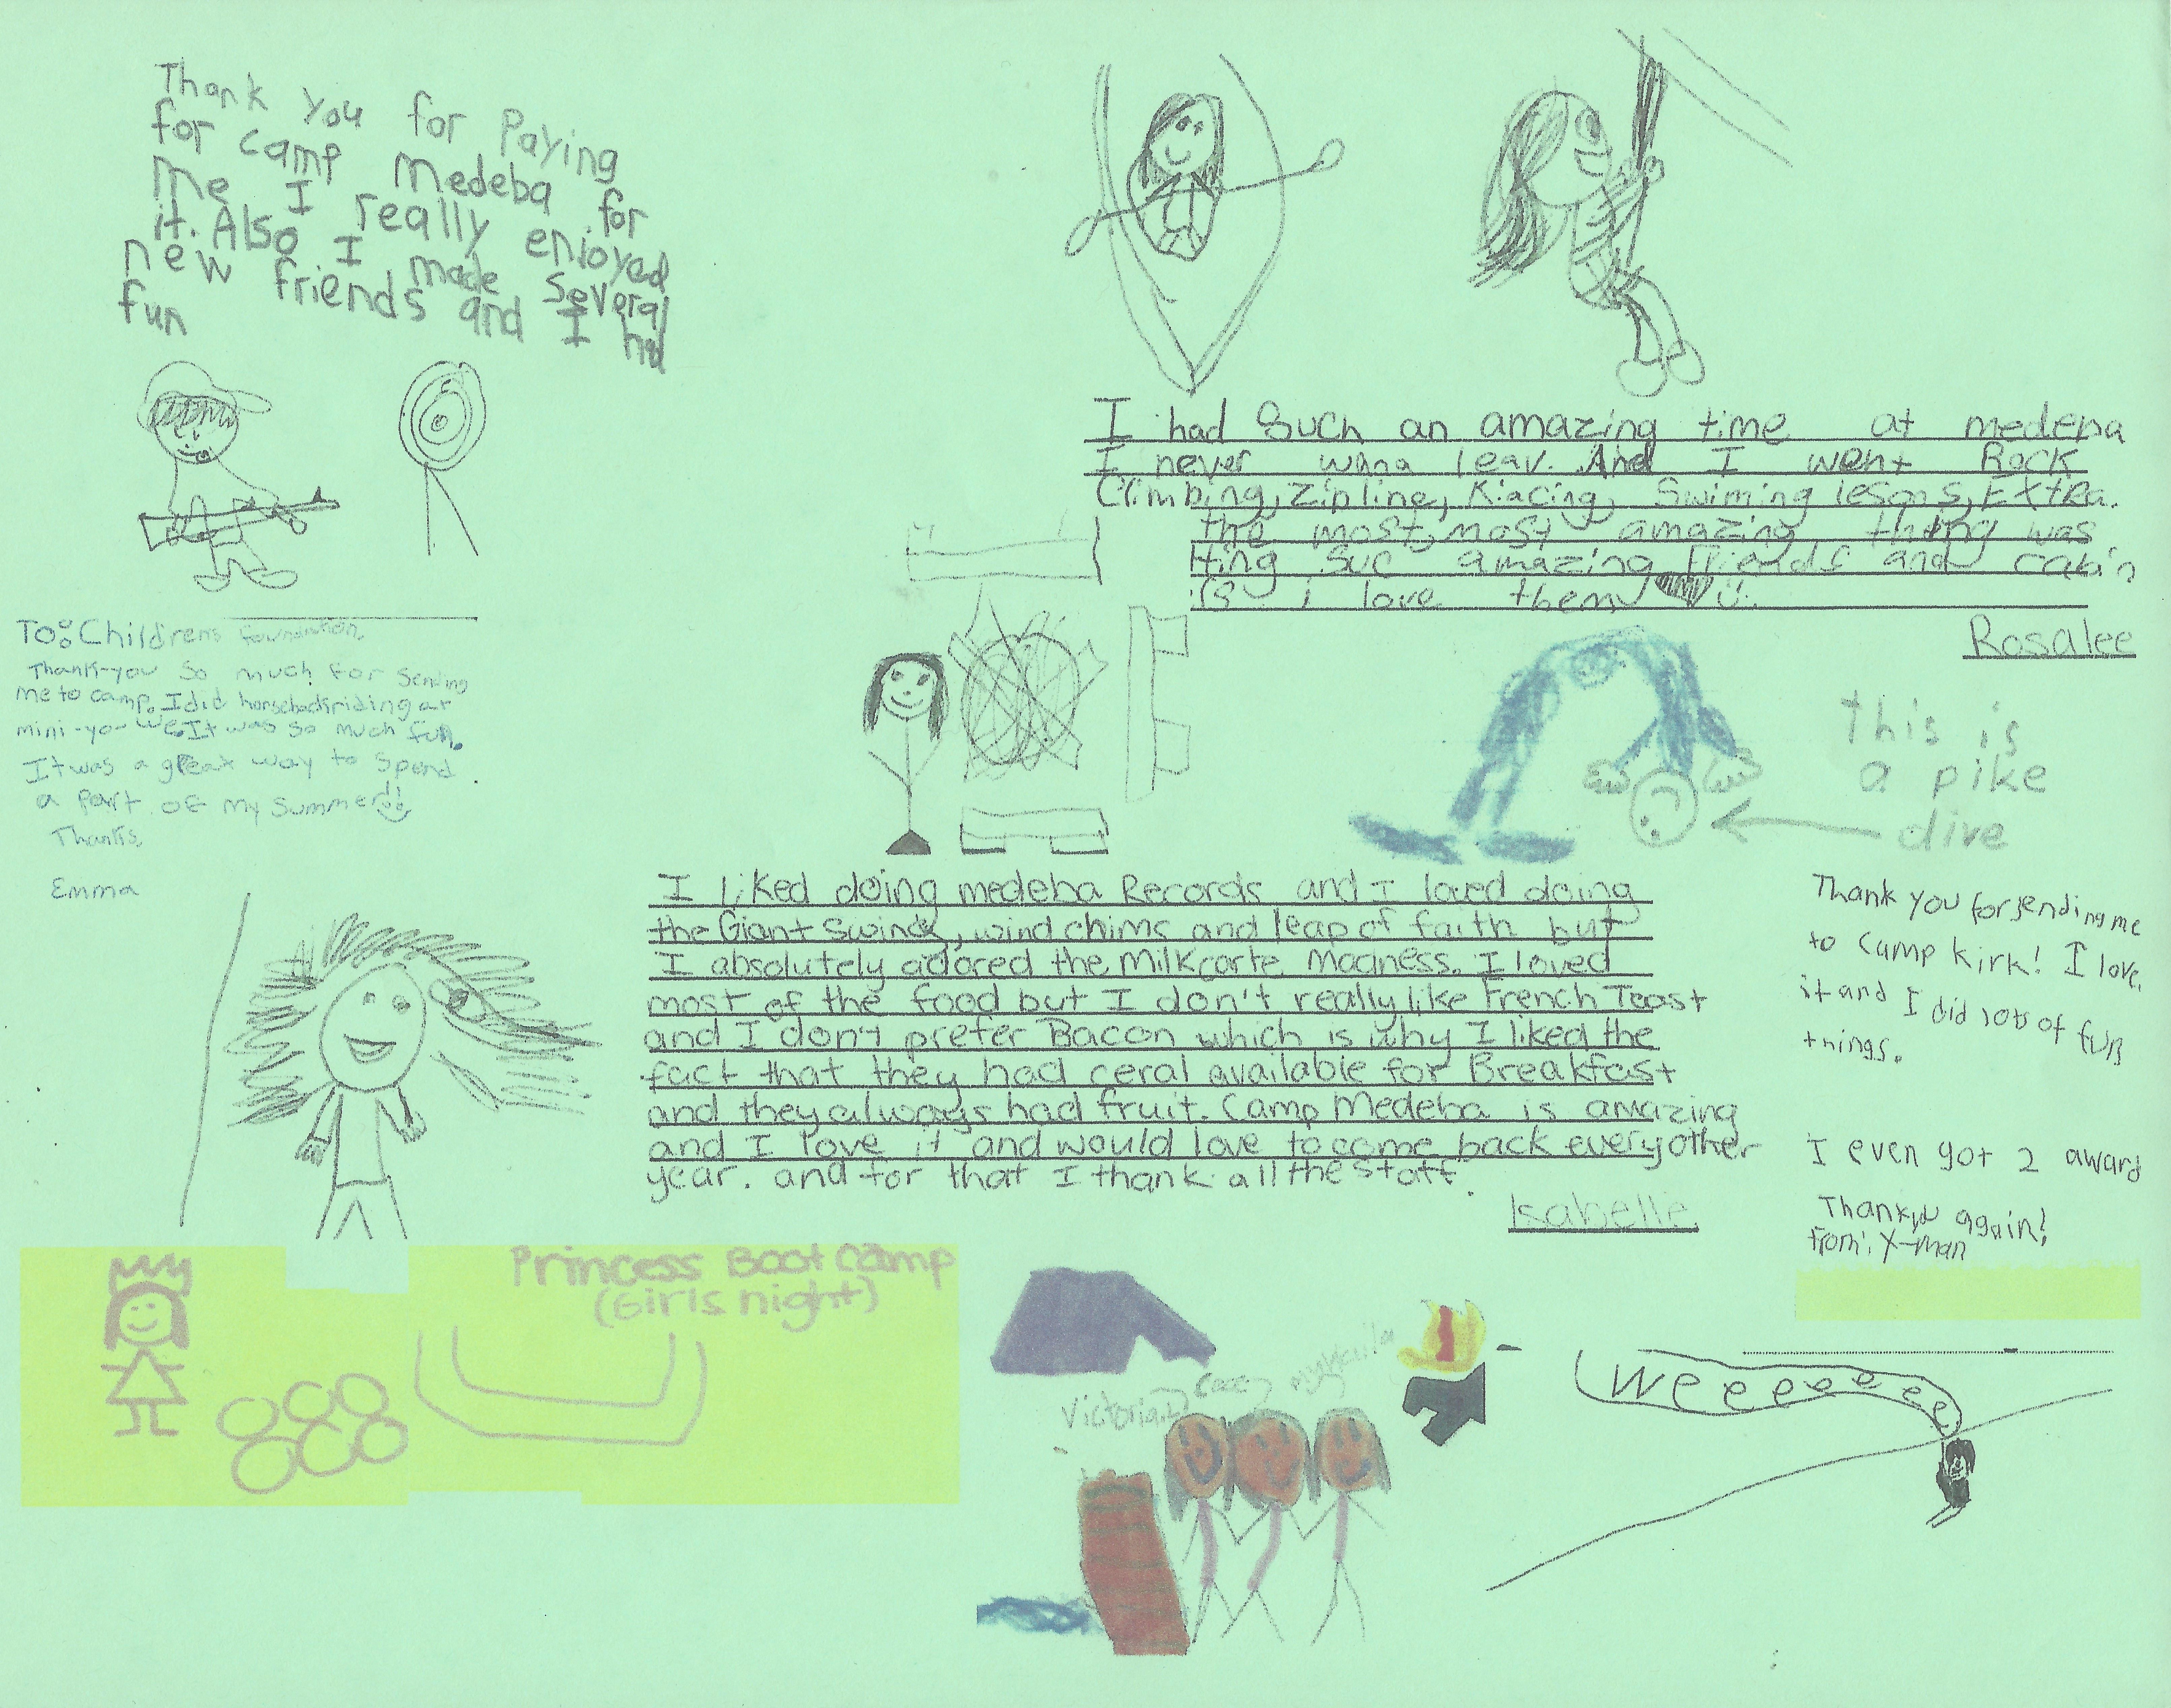 Thank you for Paying
for camp Medeba for
me I really enjoyed
it. Also I made several
new friends and I had
fun
I had Such an amazing time at medeba
I never wana leav. And I went Rock
Climbing, zipline, Kiacing, Swiming lesons, Extra.
the most, most amazing thing was
ting suc amazing friends and cabin
i love them
Rosalee
To: Childrens foundation,
Thank-you so much for sending
me to camp. I did horseback riding at
mini-yo-we. It was so much fun.
It was a great way to spend
a part of my summer!
Thanks,
Emma
this is
a pike
dive
I liked doing medeba Records and I loved doing
the Giant Swing, wind chims and leap of faith but
I absolutely adored the Milkcarte Madness. I loved
most of the food but I don't really like French Toast
and I don't prefer Bacon which is why I liked the
fact that they had ceral available for Breakfast
and they always had fruit. Camp Medeba is amazing
and I love it and would love to come back every other
year. and for that I thank all the staff.
Isabelle
Thank you for sending me
to Camp Kirk! I love
it and I did lots of fun
things.
I even got 2 award
Thankyou again!
From: X-man
Princess Boot Camp
(Girls night)
Victoria
Weeeeeeee